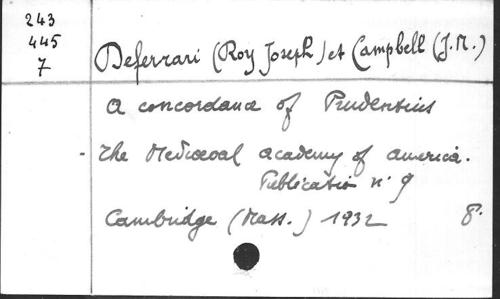 243
445
7
Deferrari (Roy Joseph) et Campbell (J.M.)
A concordance of Prudentius
- The Mediæval academy of america.
Publication n° 9
Cambridge (Mass.) 1932 8°.